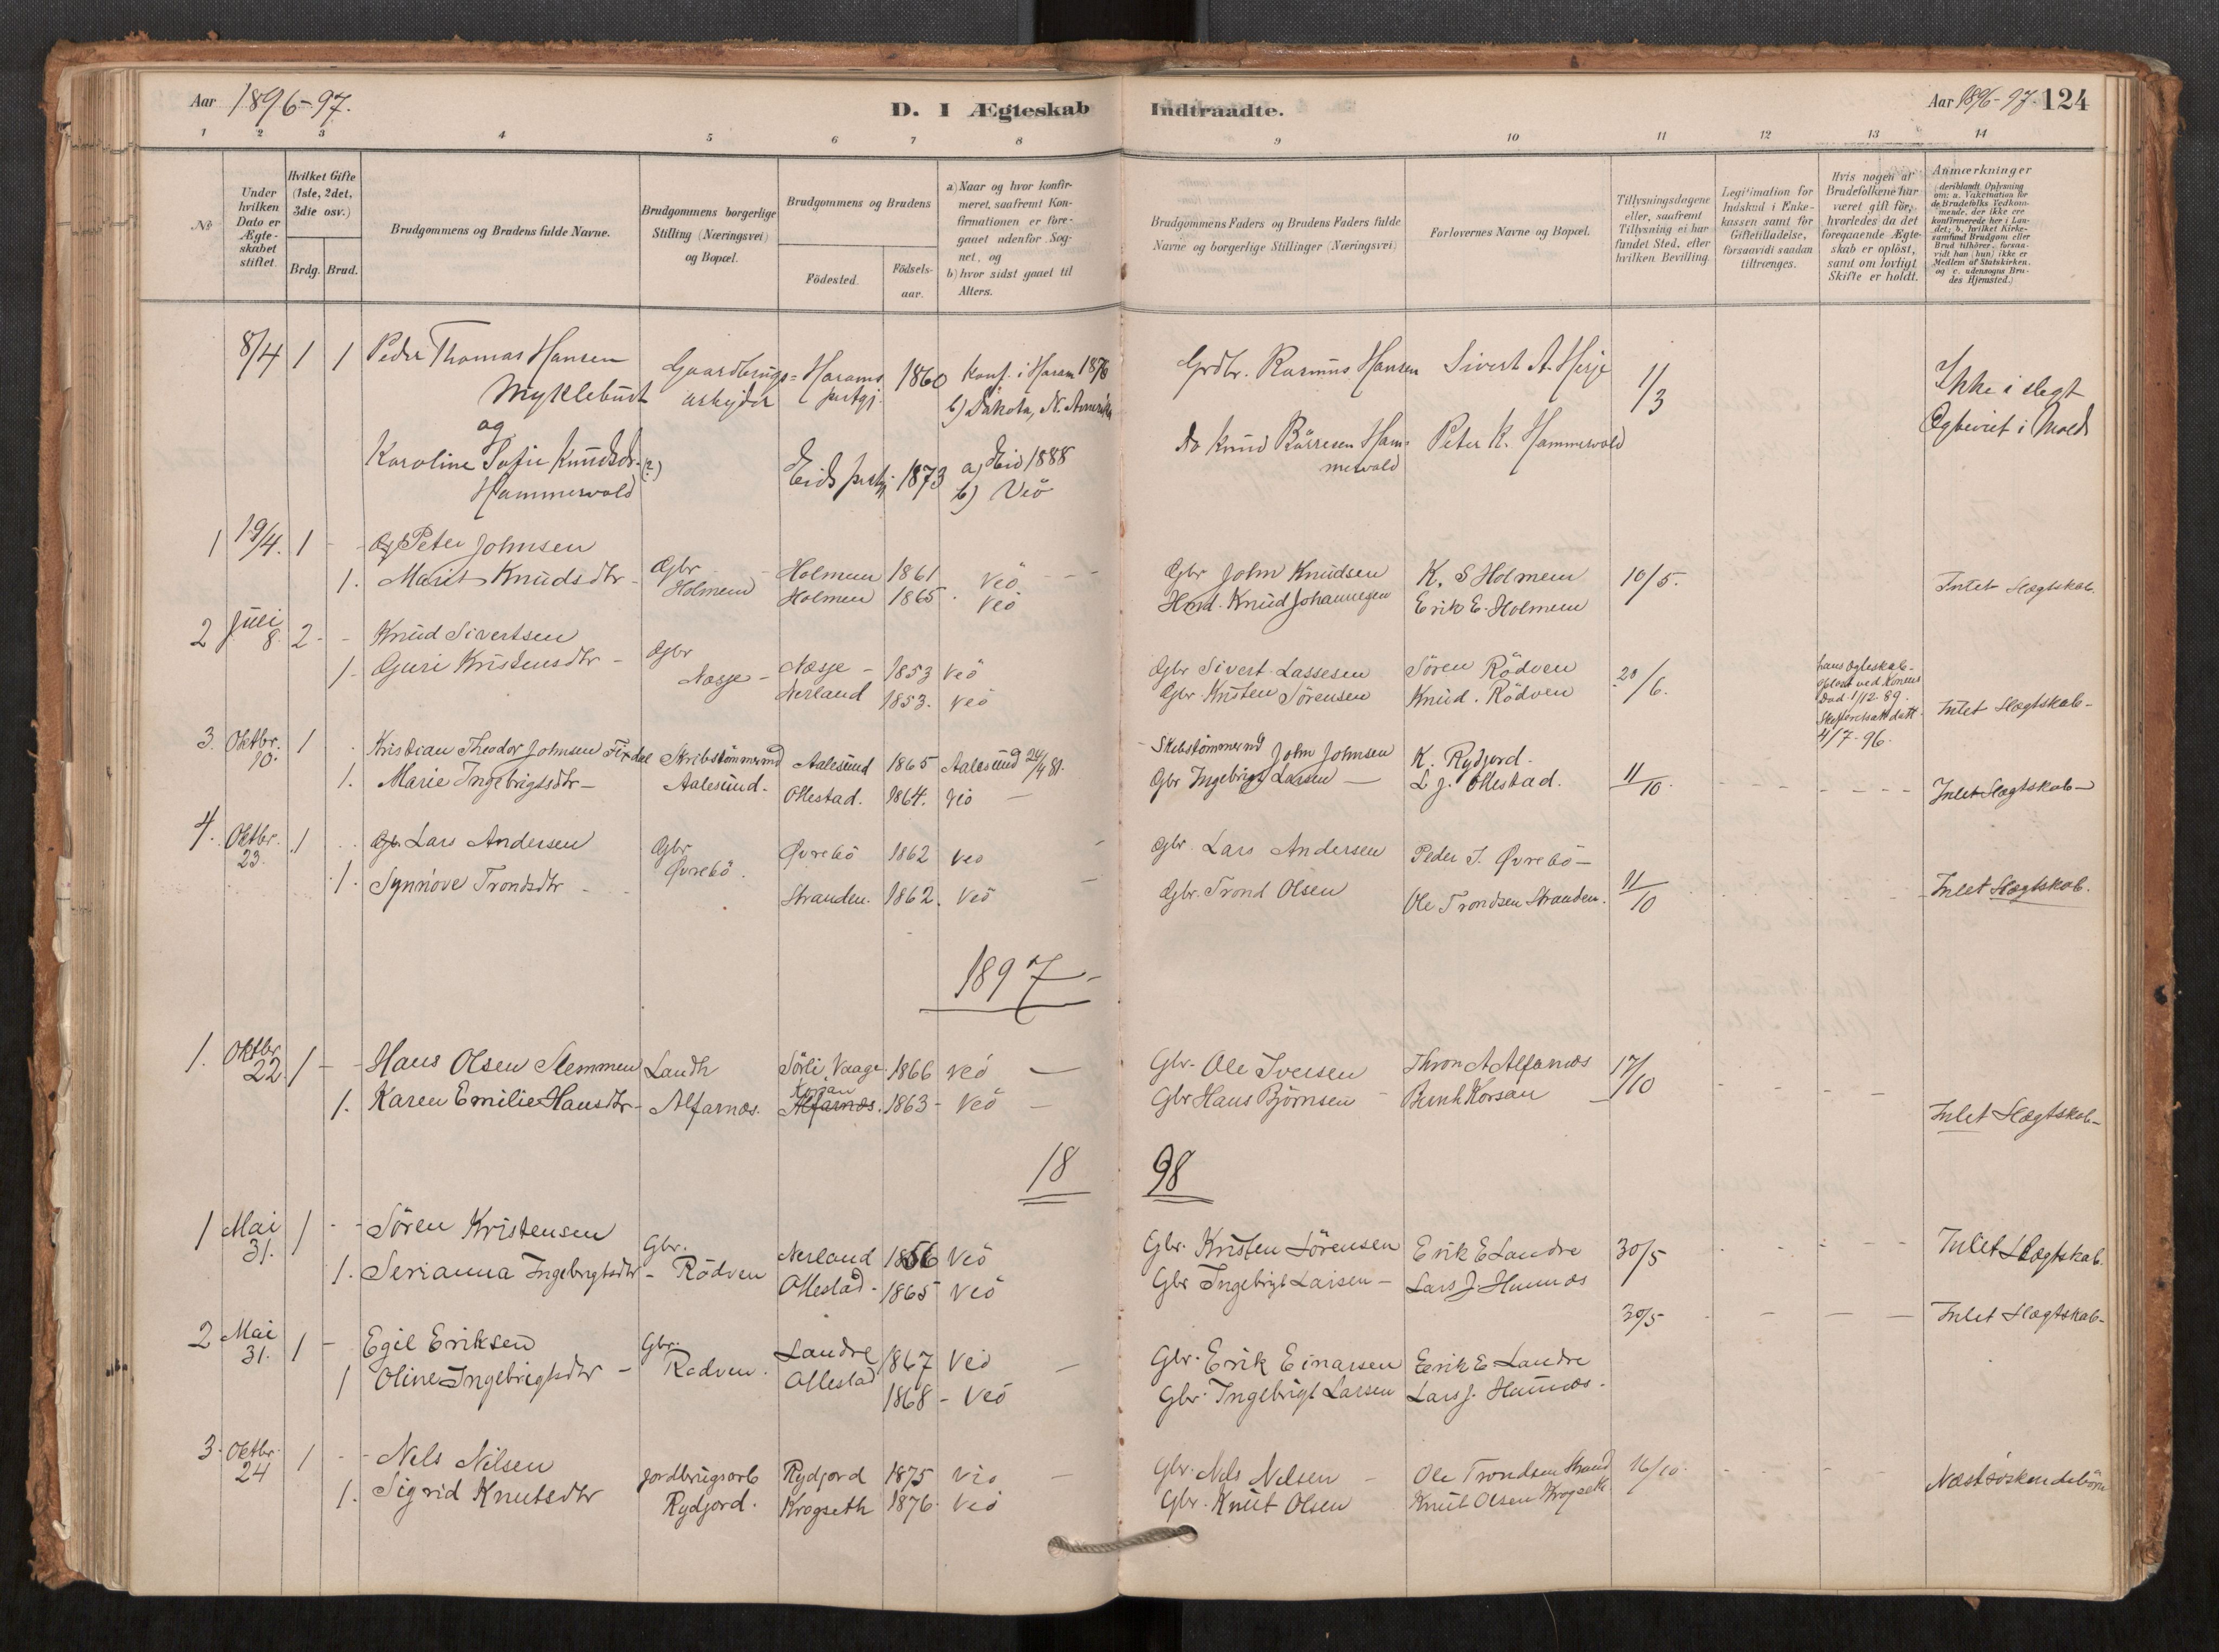 Aar 1896-97.
D. I Ægteskab
Indtraadte.
Aar 1896-97. 124
1 2 3 4 5 6 7 8 9 10 11 12 13 14
No
Under hvilken Dato er Ægteskabet stiftet.
Hvilket Gifte (1ste, 2det, 3die osv.)
Brdg. Brud.
Brudgommens og Brudens fulde Navne.
Brudgommens borgerlige Stilling (Næringsvei) og Bopæl.
Brudgommens og Brudens
Födested.
Födselsaar.
a) Naar og hvor konfirmeret, saafremt Konfirmationen er foregaaet udenfor Sognet, og
b) hvor sidst gaaet til Alters.
Brudgommens Faders og Brudens Faders fulde Navne og borgerlige Stillinger (Næringsvei)
Forlovernes Navne og Bopæl.
Tillysningsdagene eller, saafremt Tillysning ei har fundet Sted, efter hvilken Bevilling.
Legitimation for Indskud i Enkekassen samt for Giftetilladelse, forsaavidt saadan tiltrænges.
Hvis nogen af Brudefolkene har været gift för, hvorledes da det foregaaende Ægteskab er oplöst, samt om lovligt Skifte er holdt.
Anmærkninger
(deriblandt Oplysning om: a. Vakcination for de Brudefolks Vedkommende, der ikke ere konfirmerede her i Landet; b. hvilket Kirkesamfund Brudgom eller Brud tilhörer, forsaavidt han (hun) ikke er Medlem af Statskirken, og c. udensogns Brudes Hjemsted.)
8/4 1 1 Peder Thomas Hansen Gaardbrugs= Harams 1860 Konf. i Haram 1876 Grdbr. Rasmus Hansen Sivert A. Herje 11/3 Ikke i slegt
Myklebust arbeider prstgj. b) Dakota, N. Amerika
og
Karoline Sofie Knudsdr. (?) Eids prstgj. 1873 a) Eid 1888 do Knud Börresen Ham= Peter K. Hammervold
Hammervold b) Veö mervold
1 19/4. 1 - Peter Johnsen Gbr Holmem 1861 Veö Gbr John Knudsen K. S Holmem 10/5.
1. Marit Knudsdtr - Holmem Holmen 1865. Veö Knud Johannesen Erik E. Holmem Intet Slægtskab.
2 Juli 8. 2 - - Knud Sivertsen Gbr Næsje - 1853 Veö Gbr Sivert Lassesen Sören Rödven 20/6.
1 - Guri Kristensdtr - Næsje - Nerland 1853. Veö Gbr. Kristen Sörensen Knud. Rödven Intet Slægtskab -
hans Ægteskab
oplöst ved Konens
Död 1/12. 89.
4/7 - 96.
3. Oktbr. 10. 1 Kristian Theodor Johnsen Fixdal Skibstömmermd Aalesund 1865 Aalesund 24/4 81. - Skibstömmermd John Johnsen K. Rydjord.
1. Marie Ingebrigtsdtr - Aalesund. Ollestad. 1864. Veö - Gbr Ingebrigt Larsen - L J. Ollestad. 11/10. Intet Slægtskab -
4. Oktbr. 23. 1 Lars Andersen Gbr Øvrebö 1862 Veö Gbr. Lars Andersen Peder J. Øvrebö -
1. Synnöve Trondsdtr Øvrebö. Stranden. 1862. Veö Gbr. Trond Olsen Ole Trondsen Stranden. 11/10 Intet Slægtskab.
1897 -
1. Oktbr 22. 1 - - Hans Olsen Slemmen Landh Sörli, Vaage 1866 Veö - Gbr. Ole Iversen Thron A Alfarnæs 17/10
1. Karen Emilie Hansdtr - Alfarnæs. Korsan Alfarnæs. 1863 - Veö - Gbr Hans Björnsen - Bernh Korsan Intet Slægtskab -
18 98
1 Mai 31. 1 - - Sören Kristensen Gbr. Nerland 1856 Veö Gbr. Kristen Sörensen Erik E Landre 30/5 Intet Slægtskab.
1. Serianna Ingebrigtsdtr - Rödven Ollestad - 1865 Veö Gbr Ingebrigt Larsen - Lars J. Hunnæs
2 Mai 31. 1 - Egil Eriksen Gbr. Landre 1867 Veö Gbr. Erik Einarsen Erik E. Landre 30/5 Intet Slægtskab -
1 Oline Ingebrigtsdtr - Rødven. Ollestad 1868 - Veö Gbr. Ingebrigt Larsen Lars J. Hunnæs.
3. Oktbr. 24 1 - - Nels Nilsen Jordbrugsarb Rydjord 1875 Veö - Gbr. Nils Nelsen - Ole Trondsen Strand 16/10.
1. Sigrid Knutsdtr Rydjord. Krogseth 1876. Veö Gbr. Knut Olsen Knut Olsen Krogseth Næstsöskendebörn